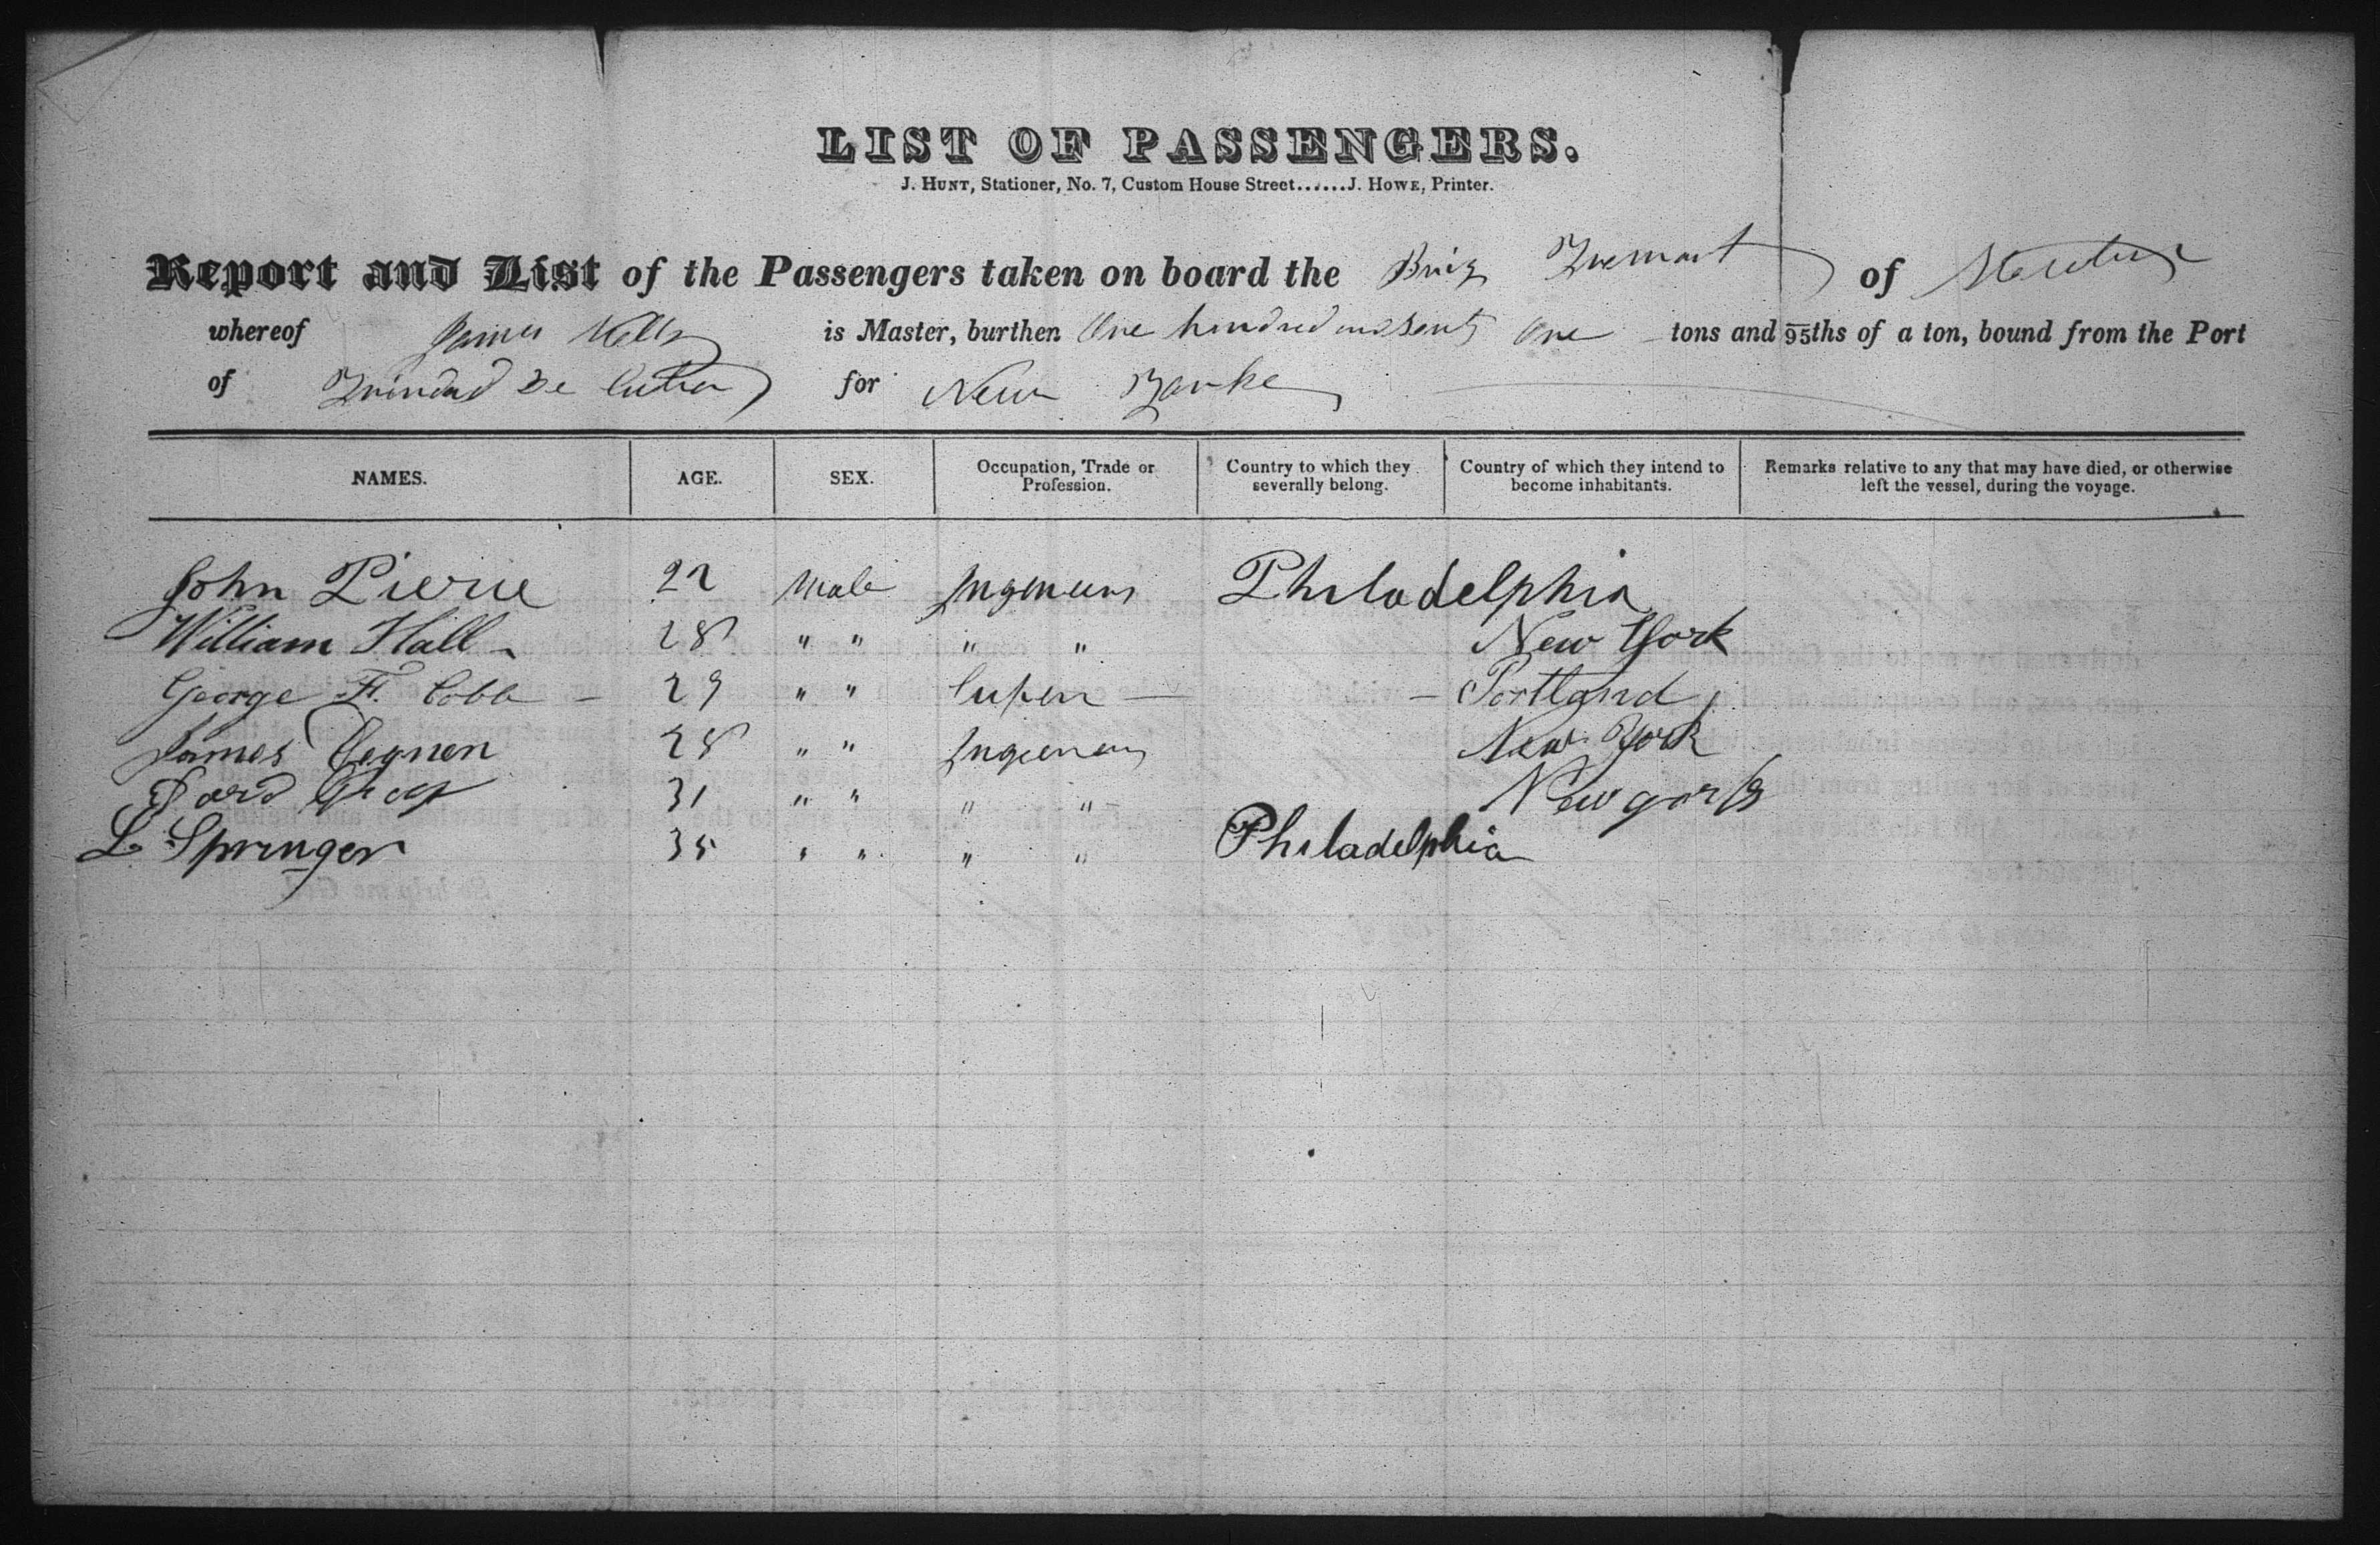 LIST OF PASSENGERS.
J. HUNT, Stationer, No. 7, Custom House Street......J. HOWE, Printer.
Report and List of the Passengers taken on board the Brig Tremont of
whereof James Kelly is Master, burthen One hundred and One tons and 95ths of a ton, bound from the Port
of Trinidad De Cuba for New Yorke
NAMES. AGE. SEX. Occupation, Trade or Profession. Country to which they severally belong. Country of which they intend to become inhabitants. Remarks relative to any that may have died, or otherwise left the vessel, during the voyage.
John Pierie 22 Male Philadelphia
William Hall 28 " " " " New York
George F. Cobb — 29 " " — — Portland
James 28 " " New York
31 " " " " New York
L Springer 35 " " " " Philadelphia